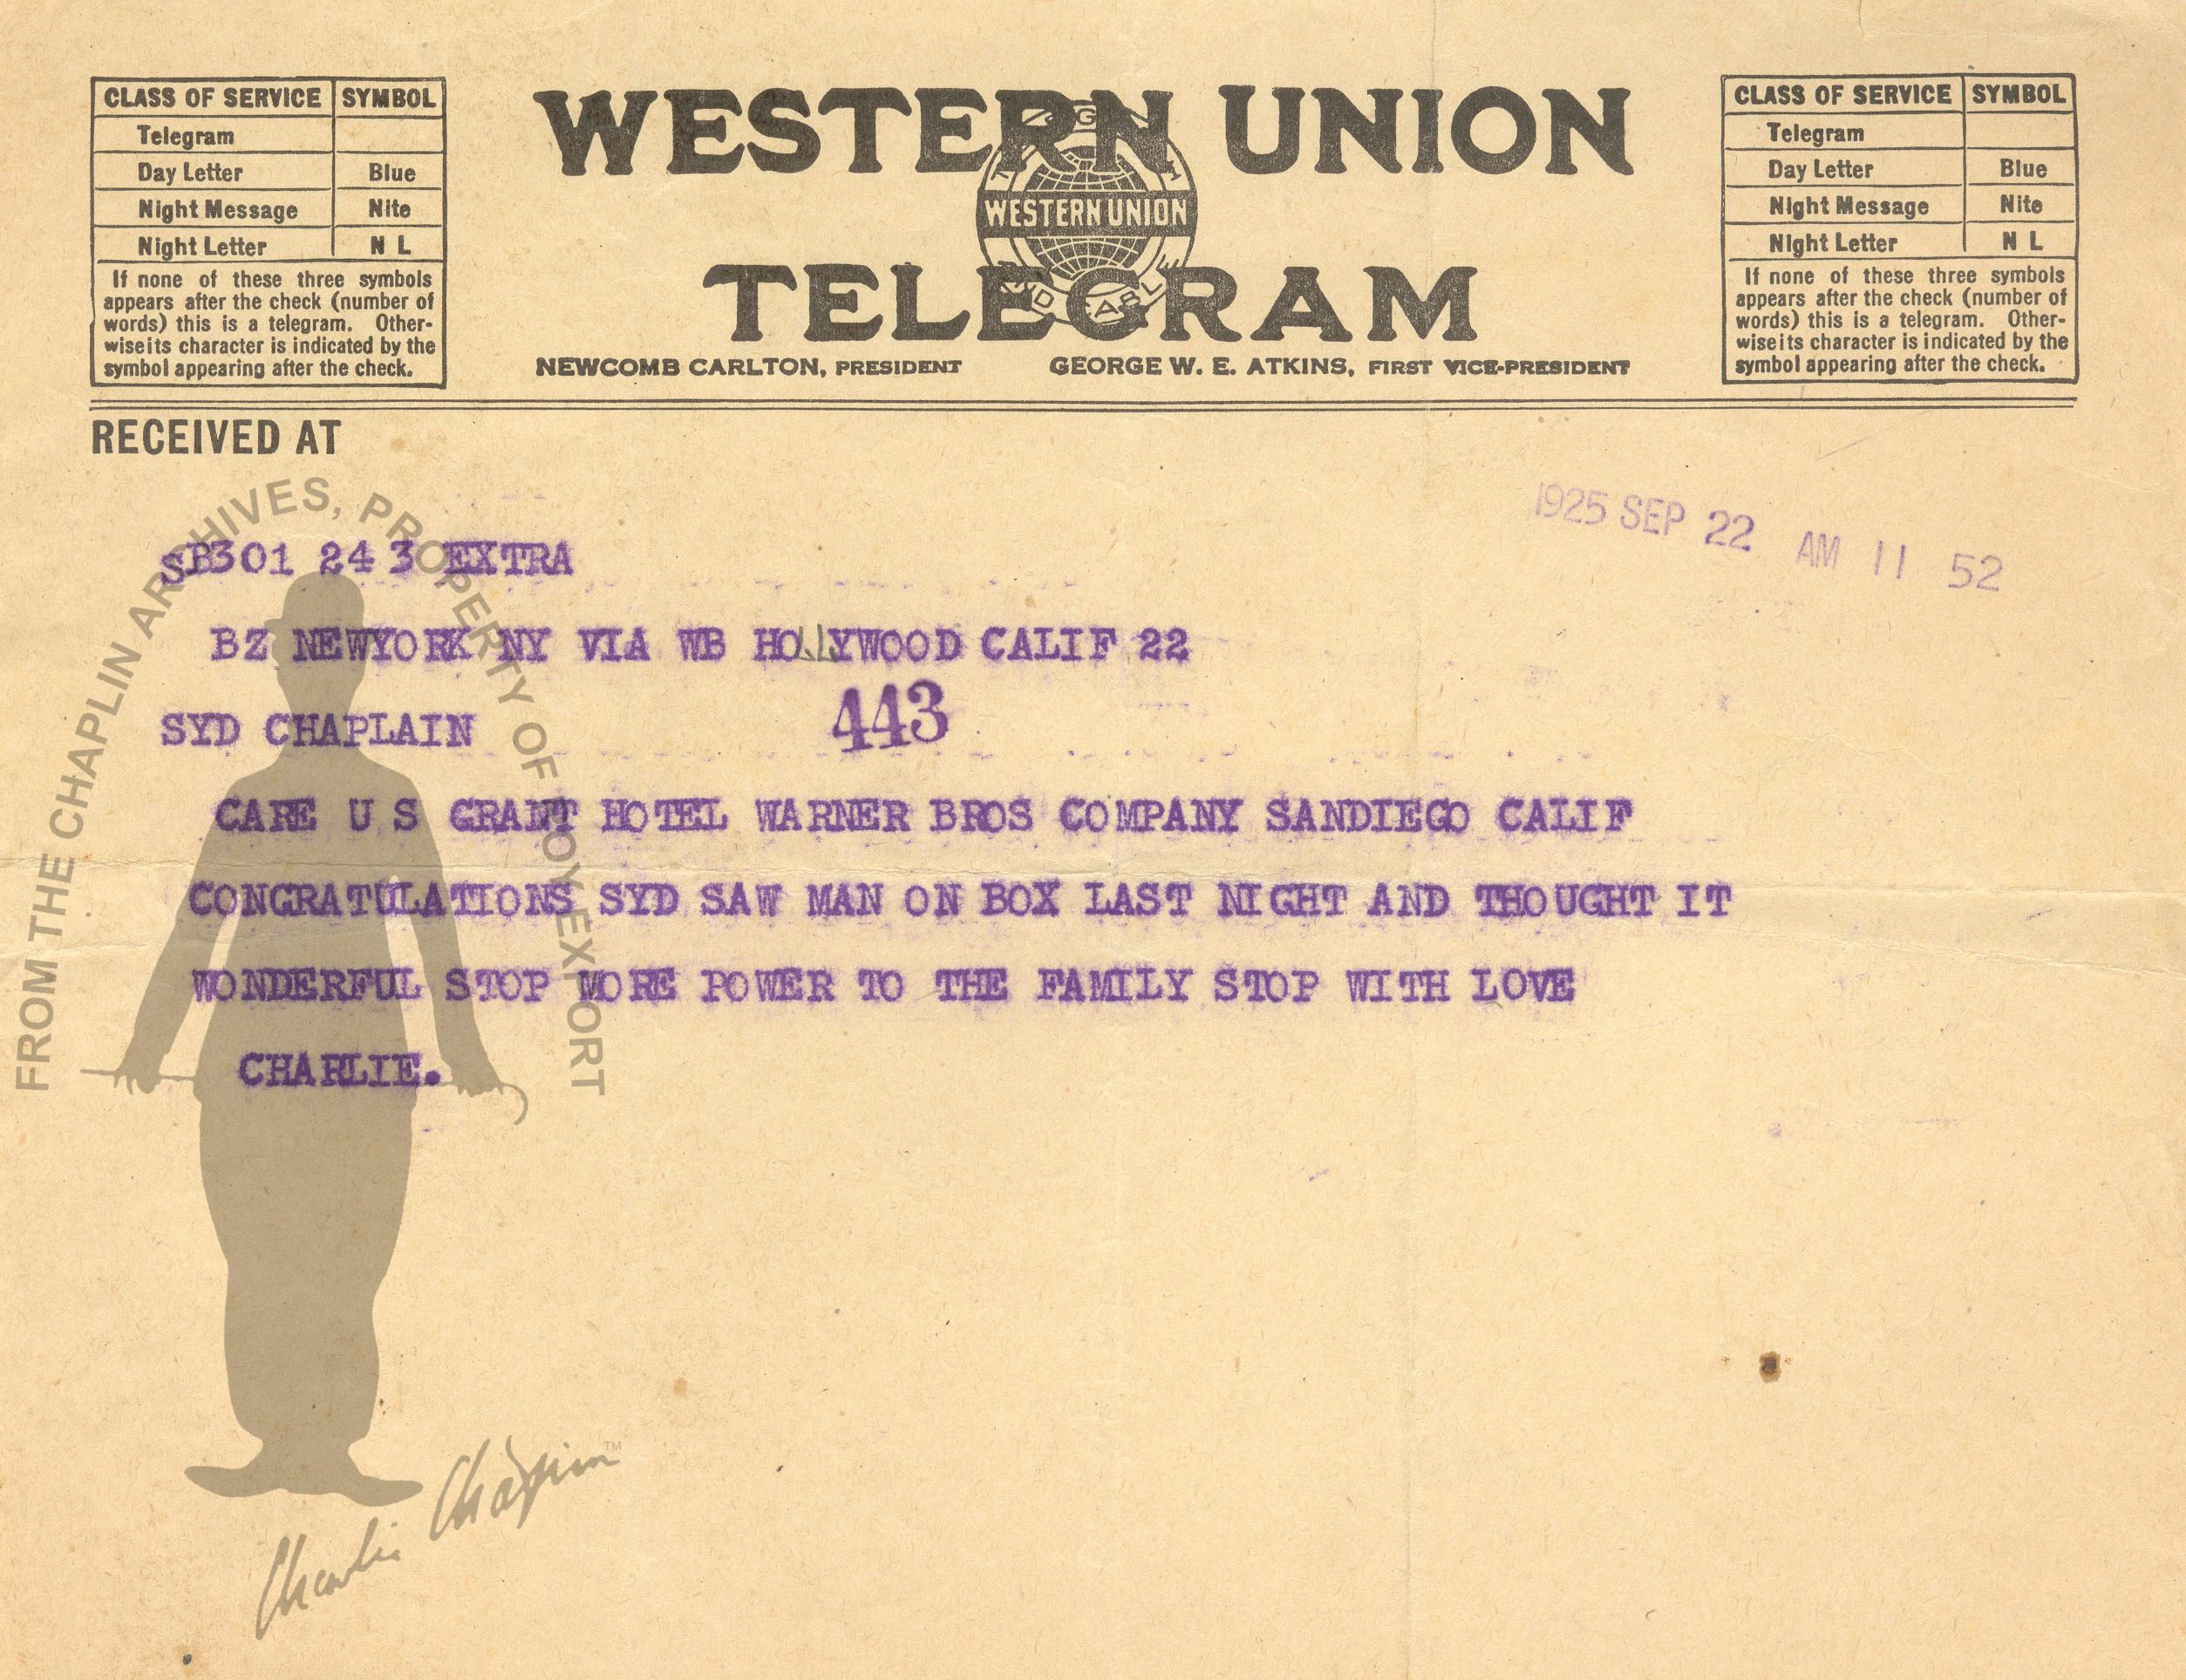 CLASS OF SERVICE SYMBOL
Telegram
Day Letter Blue
Night Message Nite
Night Letter N L
If none of these three symbols
appears after the check (number of
words) this is a telegram. Other-
wise its character is indicated by the
symbol appearing after the check.
WESTERN UNION
WESTERN UNION
TELEGRAM
NEWCOMB CARLTON, PRESIDENT GEORGE W. E. ATKINS, FIRST VICE-PRESIDENT
CLASS OF SERVICE SYMBOL
Telegram
Day Letter Blue
Night Message Nite
Night Letter N L
If none of these three symbols
appears after the check (number of
words) this is a telegram. Other-
wise its character is indicated by the
symbol appearing after the check.
RECEIVED AT
1925 SEP 22 AM 11 52
SB301 24 3 EXTRA
BZ NEWYORK NY VIA WB HOLLYWOOD CALIF 22
SYD CHAPLAIN 443
CARE U S GRANT HOTEL WARNER BROS COMPANY SANDIEGO CALIF
CONGRATULATIONS SYD SAW MAN ON BOX LAST NIGHT AND THOUGHT IT
WONDERFUL STOP MORE POWER TO THE FAMILY STOP WITH LOVE
CHARLIE.
FROM THE CHAPLIN ARCHIVES, PROPERTY OF ROY EXPORT
Charlie Chaplin TM